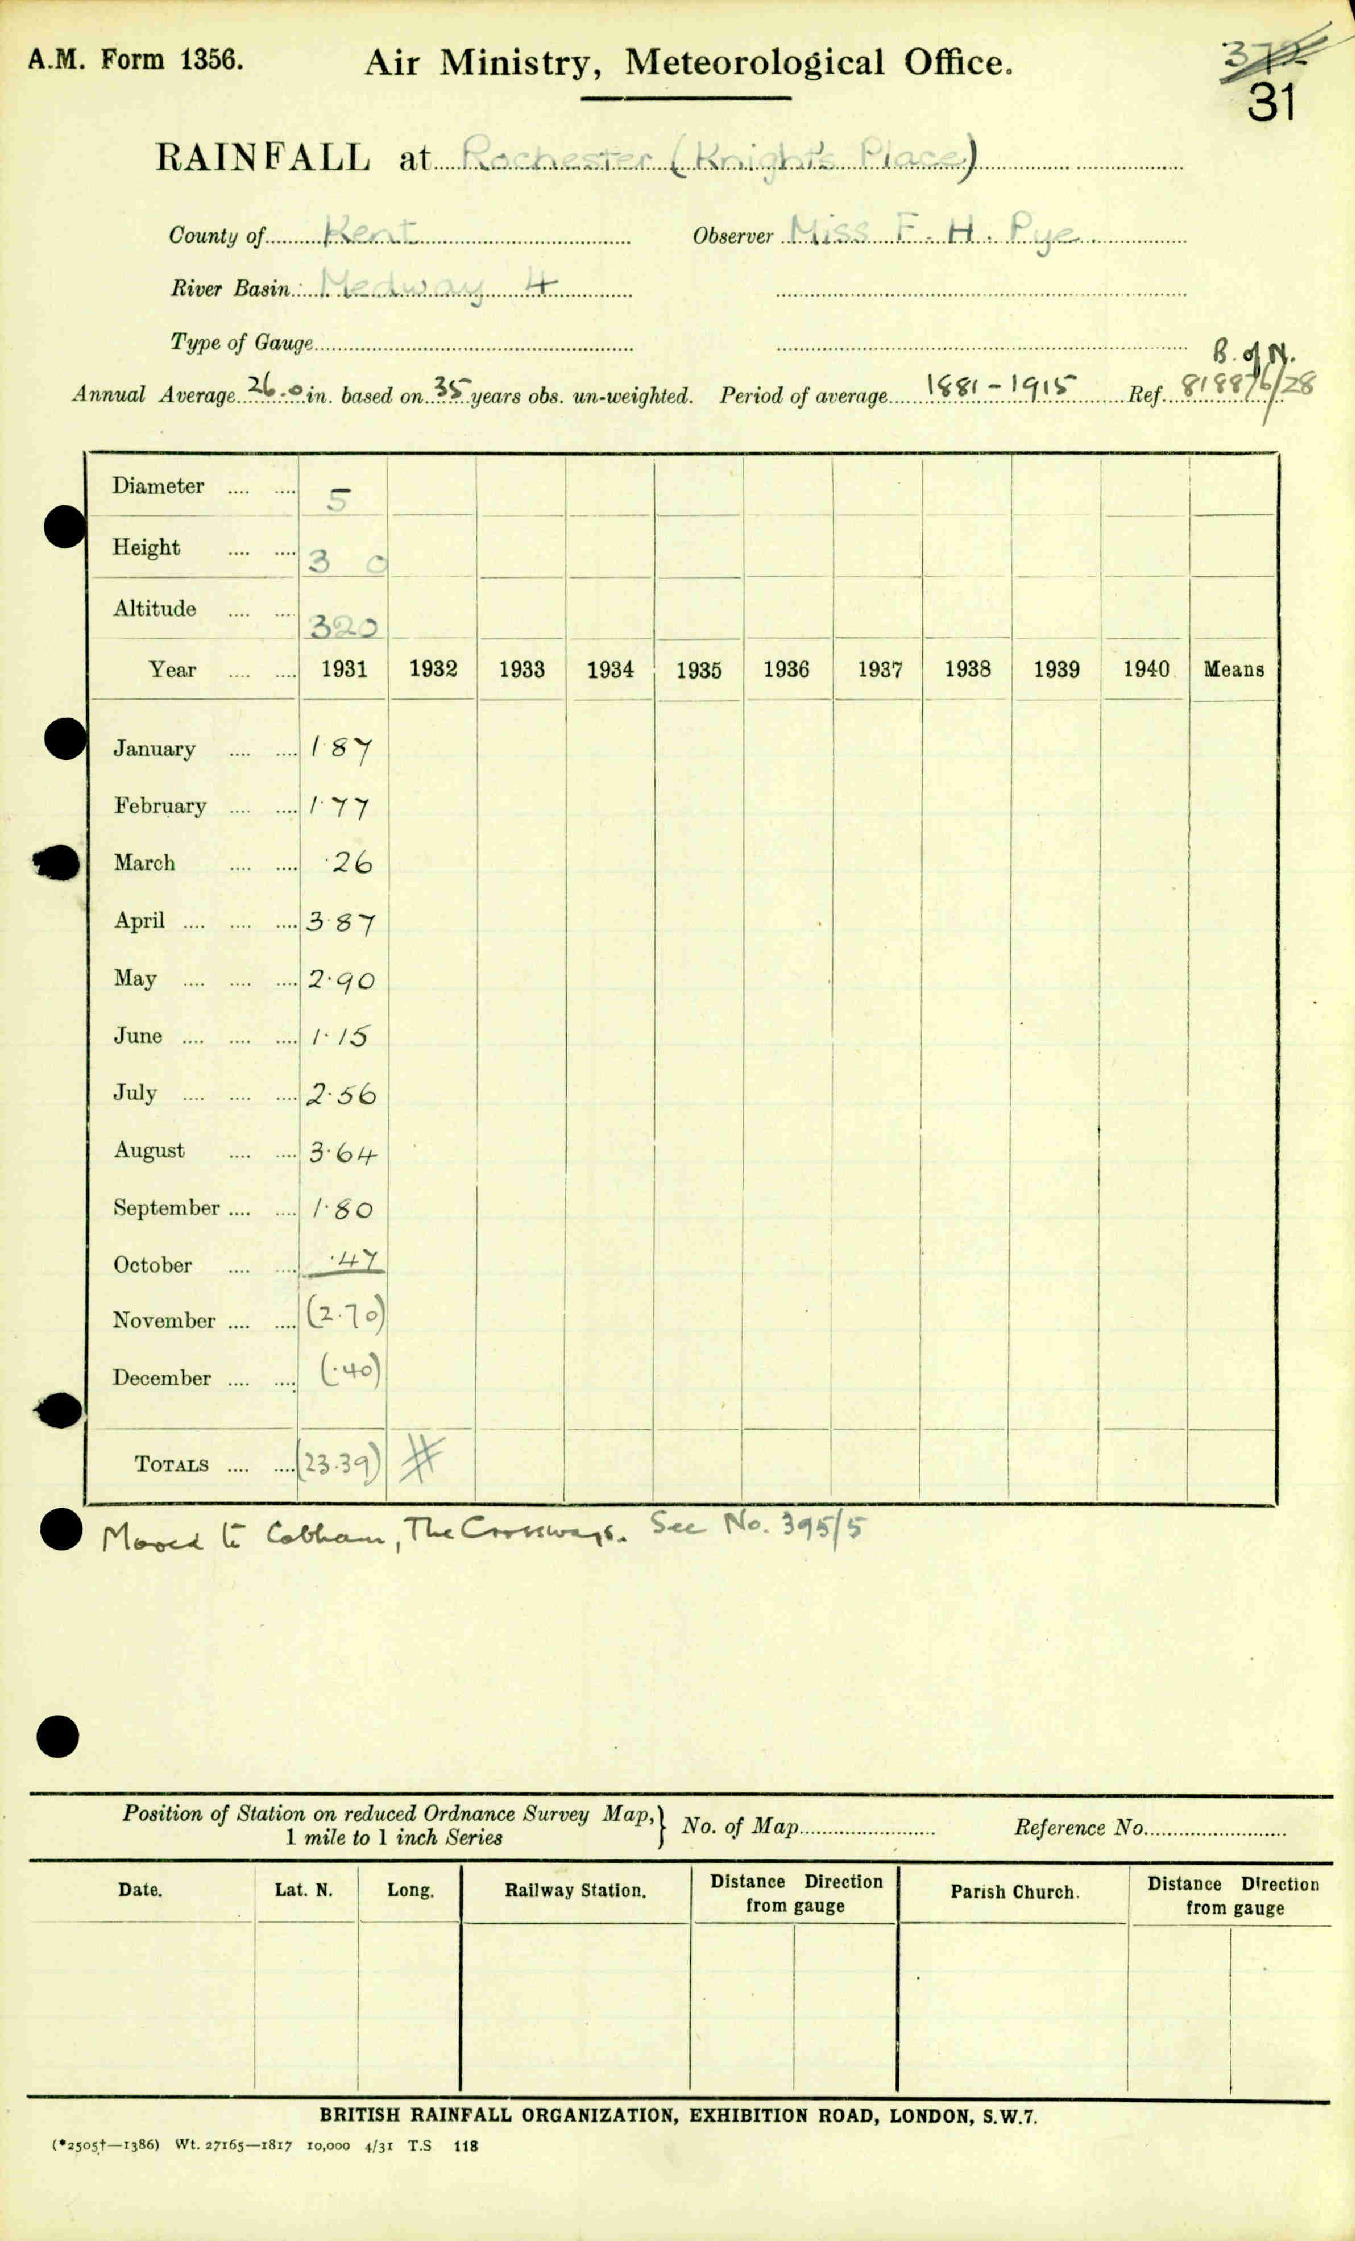 A.M. Form 1356. Air Ministry, Meteorological Office. 372
31
RAINFALL at Rochester (Knight's Place)
County of Kent Observer Miss F. H. Pye
River Basin Medway 4
Type of Gauge
B. of N.
Annual Average 26.0 in. based on 35 years obs. un-weighted. Period of average 1881-1915 Ref. 818876/28
Diameter .... .... 5
Height .... .... 3 0
Altitude .... .... 320
Year .... .... 1931 1932 1933 1934 1935 1936 1937 1938 1939 1940 Means
January .... .... 1.87
February .... .... 1.77
March .... .... .26
April .... .... .... 3.87
May .... .... .... 2.90
June .... .... .... 1.15
July .... .... .... 2.56
August .... .... 3.64
September .... .... 1.80
October .... .... .47
November .... .... (2.70)
December .... .... (.40)
TOTALS .... .... (23.39) #
Moved to Cobham, The Crossways. See No. 395/5
Position of Station on reduced Ordnance Survey Map,} No. of Map Reference No.
1 mile to 1 inch Series
Date. Lat. N. Long. Railway Station. Distance Direction from gauge Parish Church. Distance Direction from gauge
BRITISH RAINFALL ORGANIZATION, EXHIBITION ROAD, LONDON, S.W.7.
(*2505†—1386) Wt. 27165—1817 10,000 4/31 T.S 118